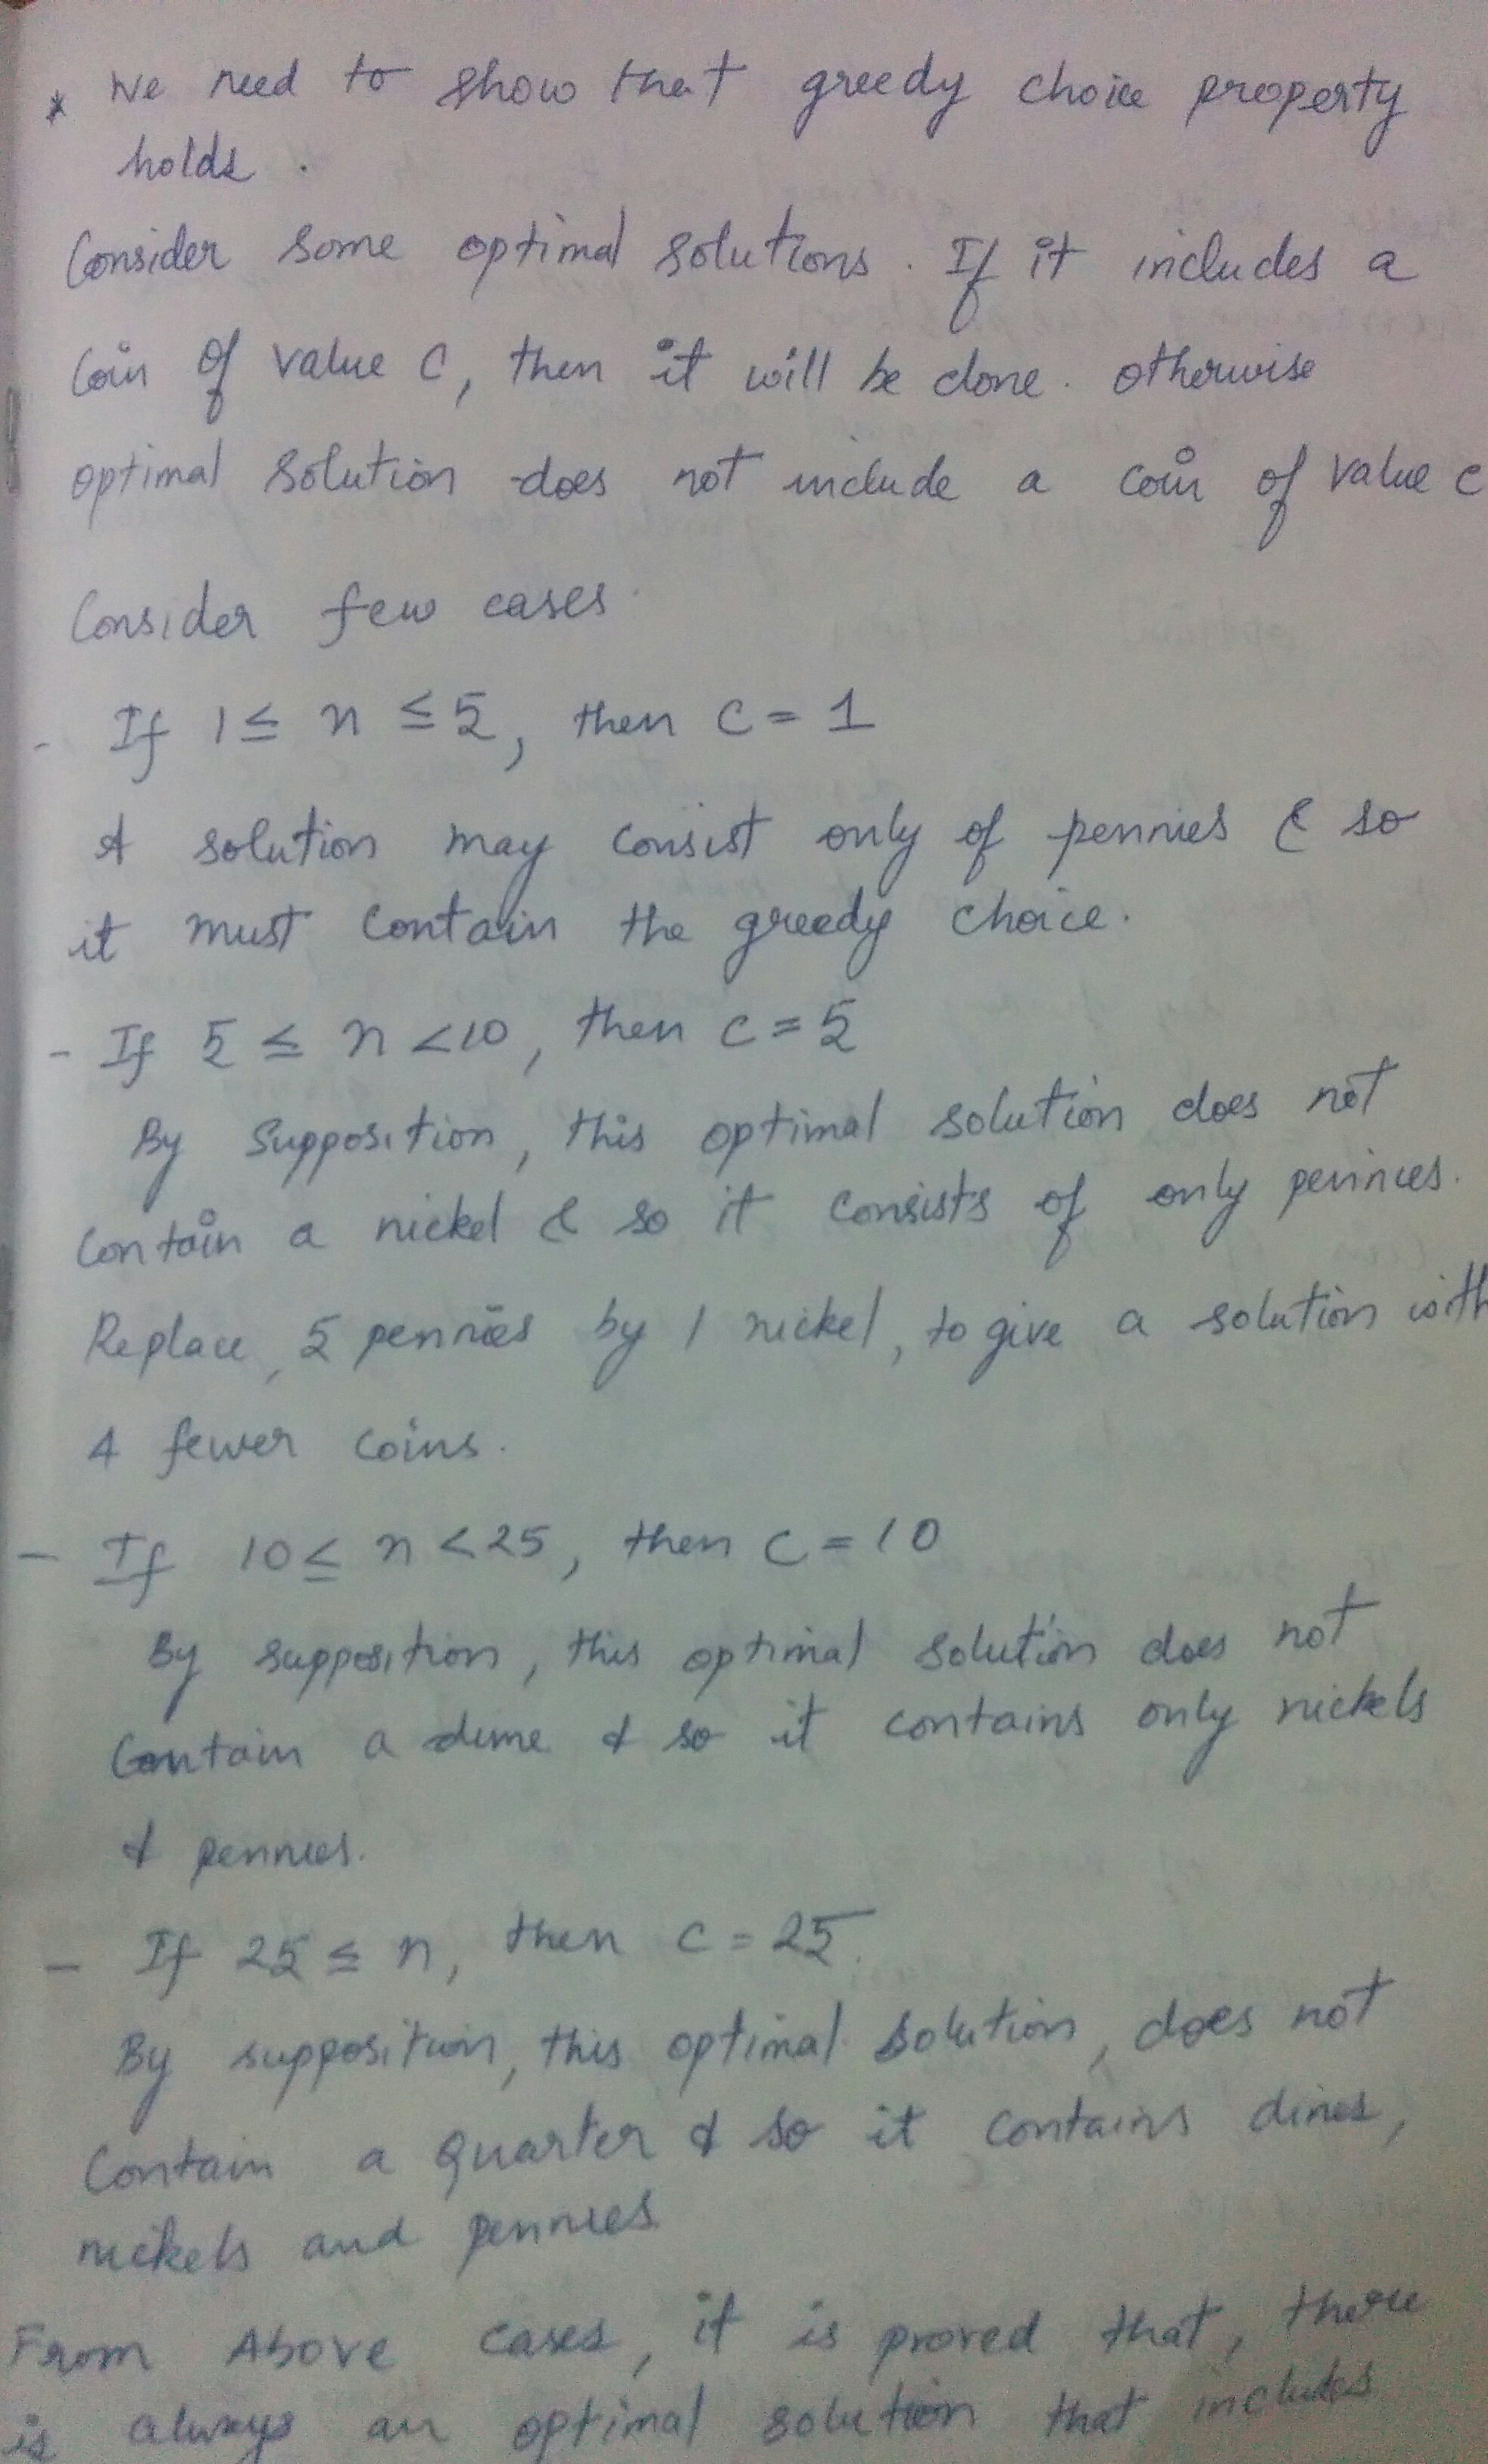 * We need to show that greedy choice property
holds.
Consider some optimal solutions. If it includes a
Coin of value C, then it will be done. otherwise
optimal solution does not include a coin of value c
Consider few cases.
- If 1 ≤ n ≤ 5, then C = 1
A solution may consist only of pennies & so
it must contain the greedy choice.
- If 5 ≤ n < 10, then C = 5
By Supposition, this optimal solution does not
Contain a nickel & so it consists of only pennies.
Replace, 5 pennies by 1 nickel, to give a solution with
4 fewer coins.
- If 10 ≤ n < 25, then C = 10
By supposition, this optimal solution does not
Contain a dime & so it contains only nickels
& pennies.
- If 25 ≤ n, then C = 25.
By supposition, this optimal solution, does not
Contain a Quarter & so it contains dimes,
nickels and pennies
From Above cases, it is proved that, there
is always an optimal solution that includes